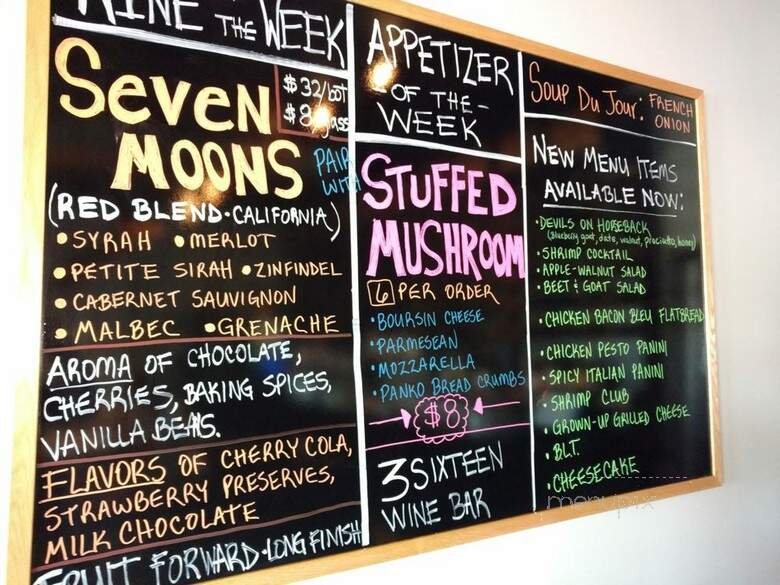 WINE OF THE WEEK
Seven
MOONS
$32/bot
$8/glass
PAIR
WITH
(RED BLEND · CALIFORNIA)
• SYRAH • MERLOT
• PETITE SIRAH • ZINFINDEL
• CABERNET SAUVIGNON
• MALBEC • GRENACHE
AROMA OF CHOCOLATE,
CHERRIES, BAKING SPICES,
VANILLA BEANS.
FLAVORS OF CHERRY COLA,
STRAWBERRY PRESERVES,
MILK CHOCOLATE
FRUIT FORWARD · LONG FINISH
APPETIZER
- OF THE -
WEEK
STUFFED
MUSHROOM
6 PER ORDER
• BOURSIN CHEESE
• PARMESEAN
• MOZZARELLA
• PANKO BREAD CRUMBS
$8
3 SIXTEEN
WINE BAR
SOUP DU JOUR: FRENCH
ONION
NEW MENU ITEMS
AVAILABLE NOW:
• DEVILS ON HORSEBACK
(blueberry goat, date, walnut, prociutto, honey)
• SHRIMP COCKTAIL
• APPLE-WALNUT SALAD
• BEET & GOAT SALAD
• CHICKEN BACON BLEU FLATBREAD
• CHICKEN PESTO PANINI
• SPICY ITALIAN PANINI
• SHRIMP CLUB
• GROWN-UP GRILLED CHEESE
• BLT.
• CHEESECAKE
menupix